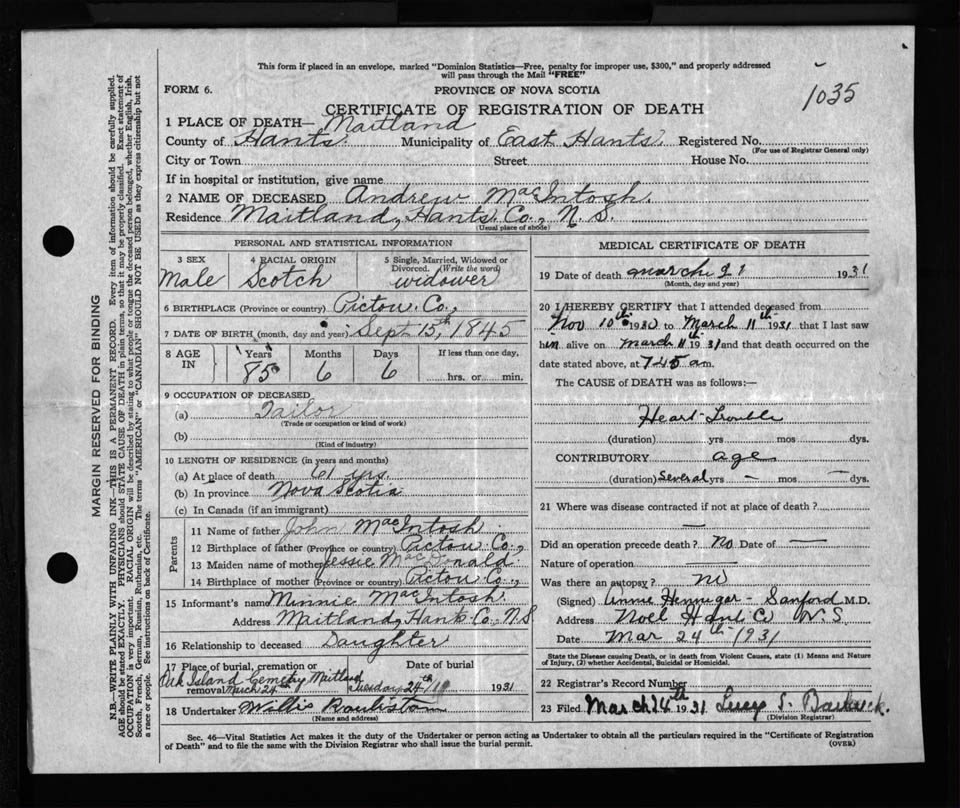 This form if placed in an envelope, marked "Dominion Statistics—Free, penalty for improper use, $300," and properly addressed
will pass through the Mail "FREE"
1035
FORM 6.
PROVINCE OF NOVA SCOTIA
CERTIFICATE OF REGISTRATION OF DEATH
1 PLACE OF DEATH— Maitland
County of Hants. Municipality of East Hants. Registered No.
(For use of Registrar General only)
City or Town Street House No.
If in hospital or institution, give name
2 NAME OF DECEASED Andrew MacIntosh.
Residence Maitland, Hants Co., N. S.
(Usual place of abode)
PERSONAL AND STATISTICAL INFORMATION
3 SEX 4 RACIAL ORIGIN 5 Single, Married, Widowed or
Divorced. (Write the word)
Male Scotch widower
6 BIRTHPLACE (Province or country) Pictou Co.,
7 DATE OF BIRTH (month, day and year) Sept 15th, 1845
8 AGE IN Years Months Days If less than one day.
85 6 6 hrs. or min.
9 OCCUPATION OF DECEASED
(a) Tailor
(Trade or occupation or kind of work)
(b)
(Kind of industry)
10 LENGTH OF RESIDENCE (in years and months)
(a) At place of death 61 yrs.
(b) In province Nova Scotia
(c) In Canada (if an immigrant)
Parents
11 Name of father John MacIntosh
12 Birthplace of father (Province or country) Pictou Co.,
13 Maiden name of mother Jessie MacDonald
14 Birthplace of mother (Province or country) Pictou Co.,
15 Informant's name Minnie MacIntosh.
Address Maitland, Hants Co., N.S
16 Relationship to deceased Daughter
17 Place of burial, cremation or Date of burial
Oak Island Cemetry Maitland
removal March 24th Tuesday 24th 1931
18 Undertaker Willis
(Name and address)
MEDICAL CERTIFICATE OF DEATH
19 Date of death march 21 1931
(Month, day and year)
20 I HEREBY CERTIFY that I attended deceased from
Nov 10th 1930 to March 11th 1931 that I last saw
him alive on March 11th 1931 and that death occurred on the
date stated above, at 7.45 a m.
The CAUSE of DEATH was as follows:
Heart-Trouble
(duration) yrs mos dys.
CONTRIBUTORY age
(duration) Several yrs — mos — dys.
21 Where was disease contracted if not at place of death?
—
Did an operation precede death? No Date of —
Nature of operation —
Was there an autopsy? no
(Signed) Annie Hennigar-Sanford M.D.
Address Noel Hants Co N.S.
Date Mar 24th 1931
State the Disease causing Death, or in death from Violent Causes, state (1) Means and Nature
of Injury, (2) whether Accidental, Suicidal or Homicidal.
22 Registrar's Record Number
23 Filed March 24th 1931 Lucy S.
(Division Registrar)
Sec. 46—Vital Statistics Act makes it the duty of the Undertaker or person acting as Undertaker to obtain all the particulars required in the "Certificate of Registration
of Death" and to file the same with the Division Registrar who shall issue the burial permit. (OVER)
MARGIN RESERVED FOR BINDING
N.B.—WRITE PLAINLY WITH UNFADING INK—THIS IS A PERMANENT RECORD. Every item of information should be carefully supplied.
AGE should be stated EXACTLY. PHYSICIANS should STATE CAUSE OF DEATH in plain terms, so that it may be properly classified. Exact statement of
OCCUPATION is very important. RACIAL ORIGIN will be described by stating to what people or tongue the deceased person belonged, whether English, Irish,
Scotch, French, German, Russian, Ruthenian, etc. The terms "AMERICAN" or "CANADIAN" SHOULD NOT BE USED as they express citizenship but not
a race or people. See instructions on back of Certificate.